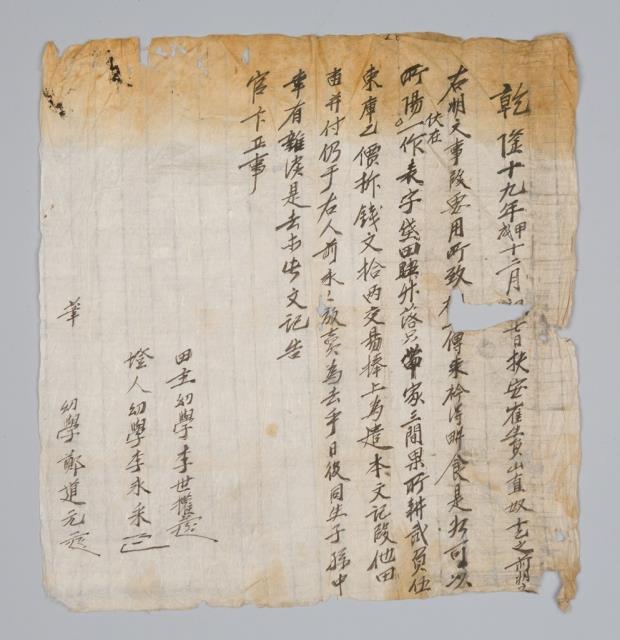 乾隆十九年甲戌十二月 七日扶安崔生員山直奴 之前明文
右明文事段要用所致 傳來衿得耕食是如可
伏在
所陽 作表字 田肆升落只 家三間果所耕 負
東庫乙價折錢文拾兩交易捧上爲遣本文記段他田
畓幷付仍于右人前永永放賣爲去乎日後同生子孫中
幸有雜談是去等此文記告
官卞正事
田主幼學李世權
證人幼學李永采
筆 幼學鄭道元